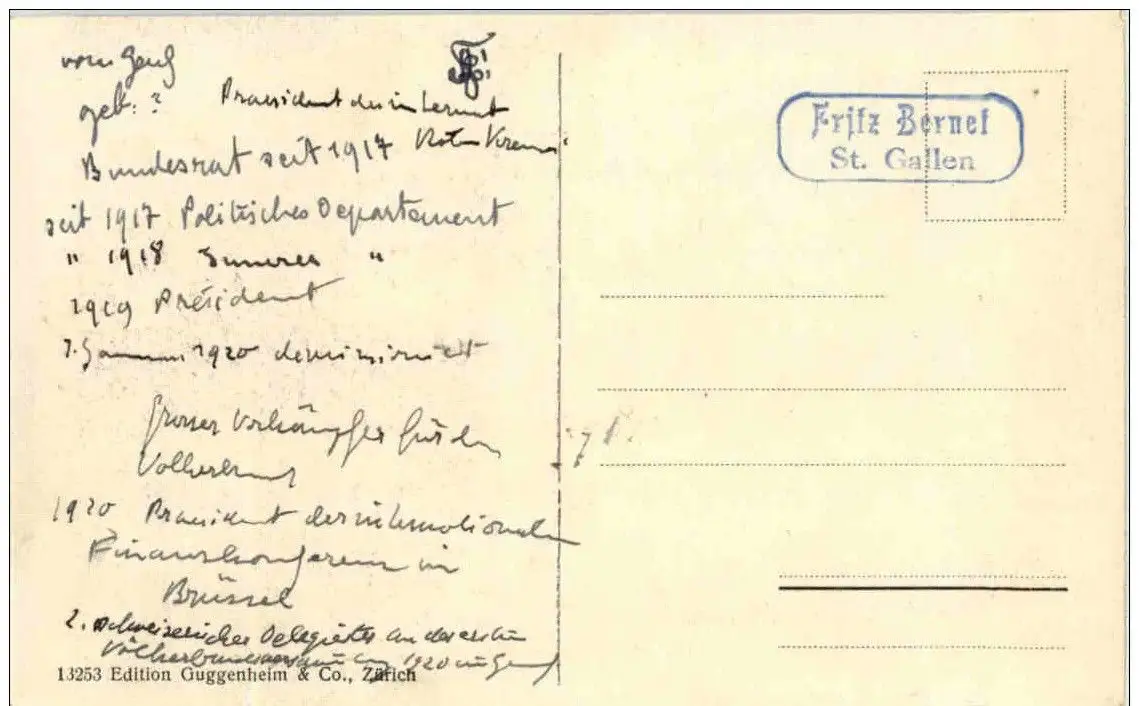 von Genf
geb: ?
Praesident des internat
Roten Kreuz
Bundesrat seit 1917
seit 1917 Politisches Departement
" 1918 Inneres "
1919 Präsident
1920 demissioniert
Grosser Vorkämpfer für den
Völkerbund
1920 Praesident der internationalen
Finanzkonferenz in
Brüssel
2. schweizerischer Delegierter an der ersten
Völkerbundsversammlung 1920 in Genf
13253 Edition Guggenheim & Co., Zürich
Fritz Bernet
St. Gallen